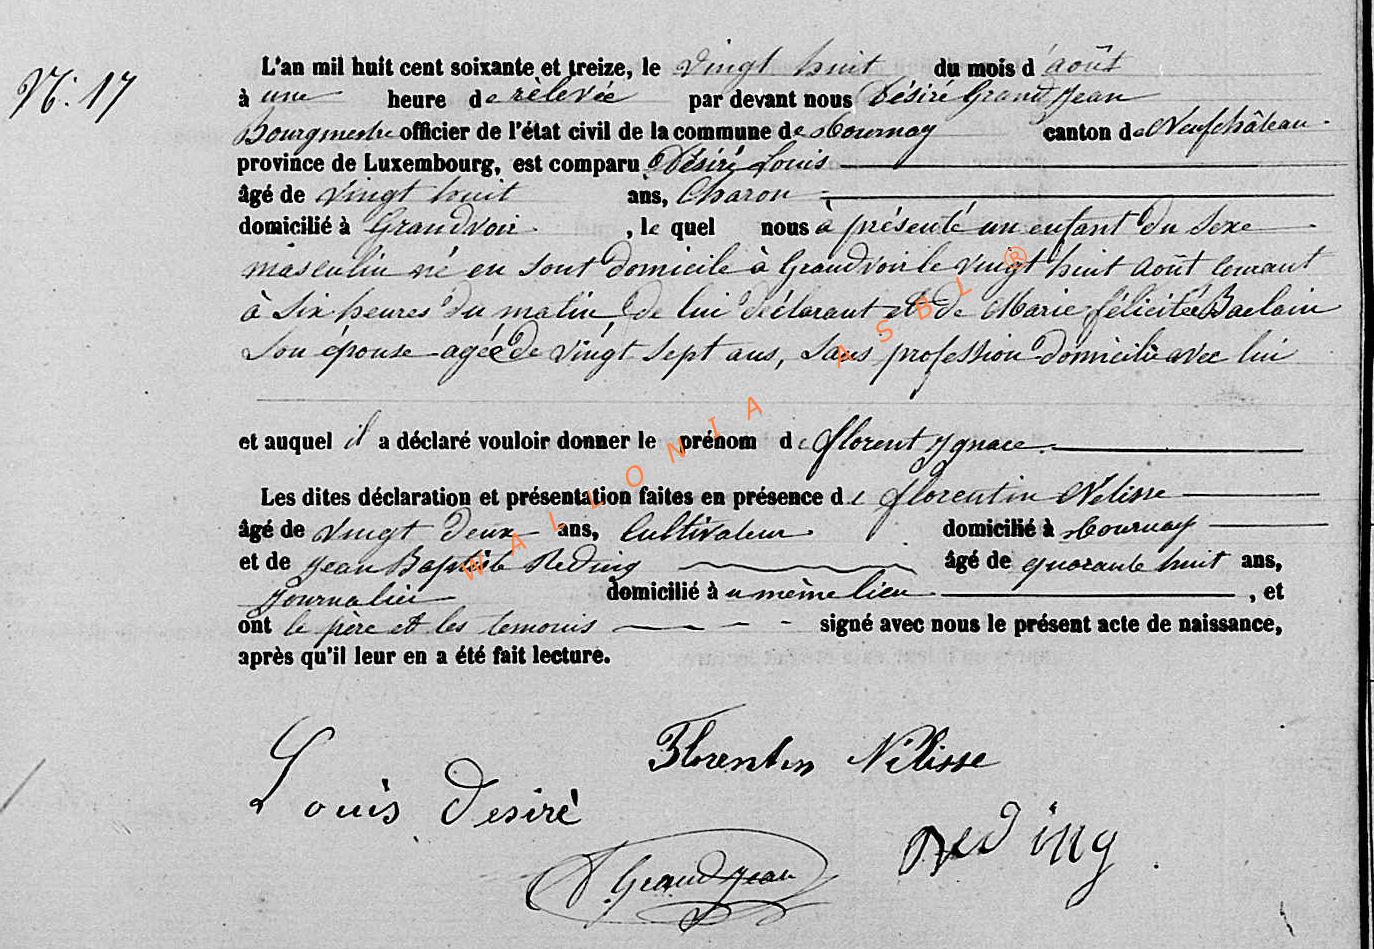 N°. 17
L'an mil huit cent soixante et treize, le vingt huit du mois d'août
à une heure de rèlevée par devant nous Désiré GrandJean
Bourgmestre officier de l'état civil de la commune de Tournay canton de Neufchâteau.
province de Luxembourg, est comparu Désiré Louis
âgé de vingt huit ans, Charon
domicilié à Grandvoir , le quel nous a présenté un enfant du sexe
masculin né en sont domicile à Grandvoir le vingt huit août courant
à six heures du matin de lui déclarant et de Marie félicitée Baelain
son épouse agée de vingt sept ans, sans profession domicilié avec lui
et auquel il a déclaré vouloir donner le prénom de florent Ygnace.
Les dites déclaration et présentation faites en présence de florentin Nelisse
âgé de vingt deux ans, Cultivateur domicilié à Tournay
et de Jean Baptiste Reding âgé de quarante huit ans,
Journalier domicilié à u même lieu , et
ont le père et les temoins signé avec nous le présent acte de naissance,
après qu'il leur en a été fait lecture.
Florentin Nélisse
Louis Desiré
Reding
D. GrandJean
WALLONIA ASBL ®